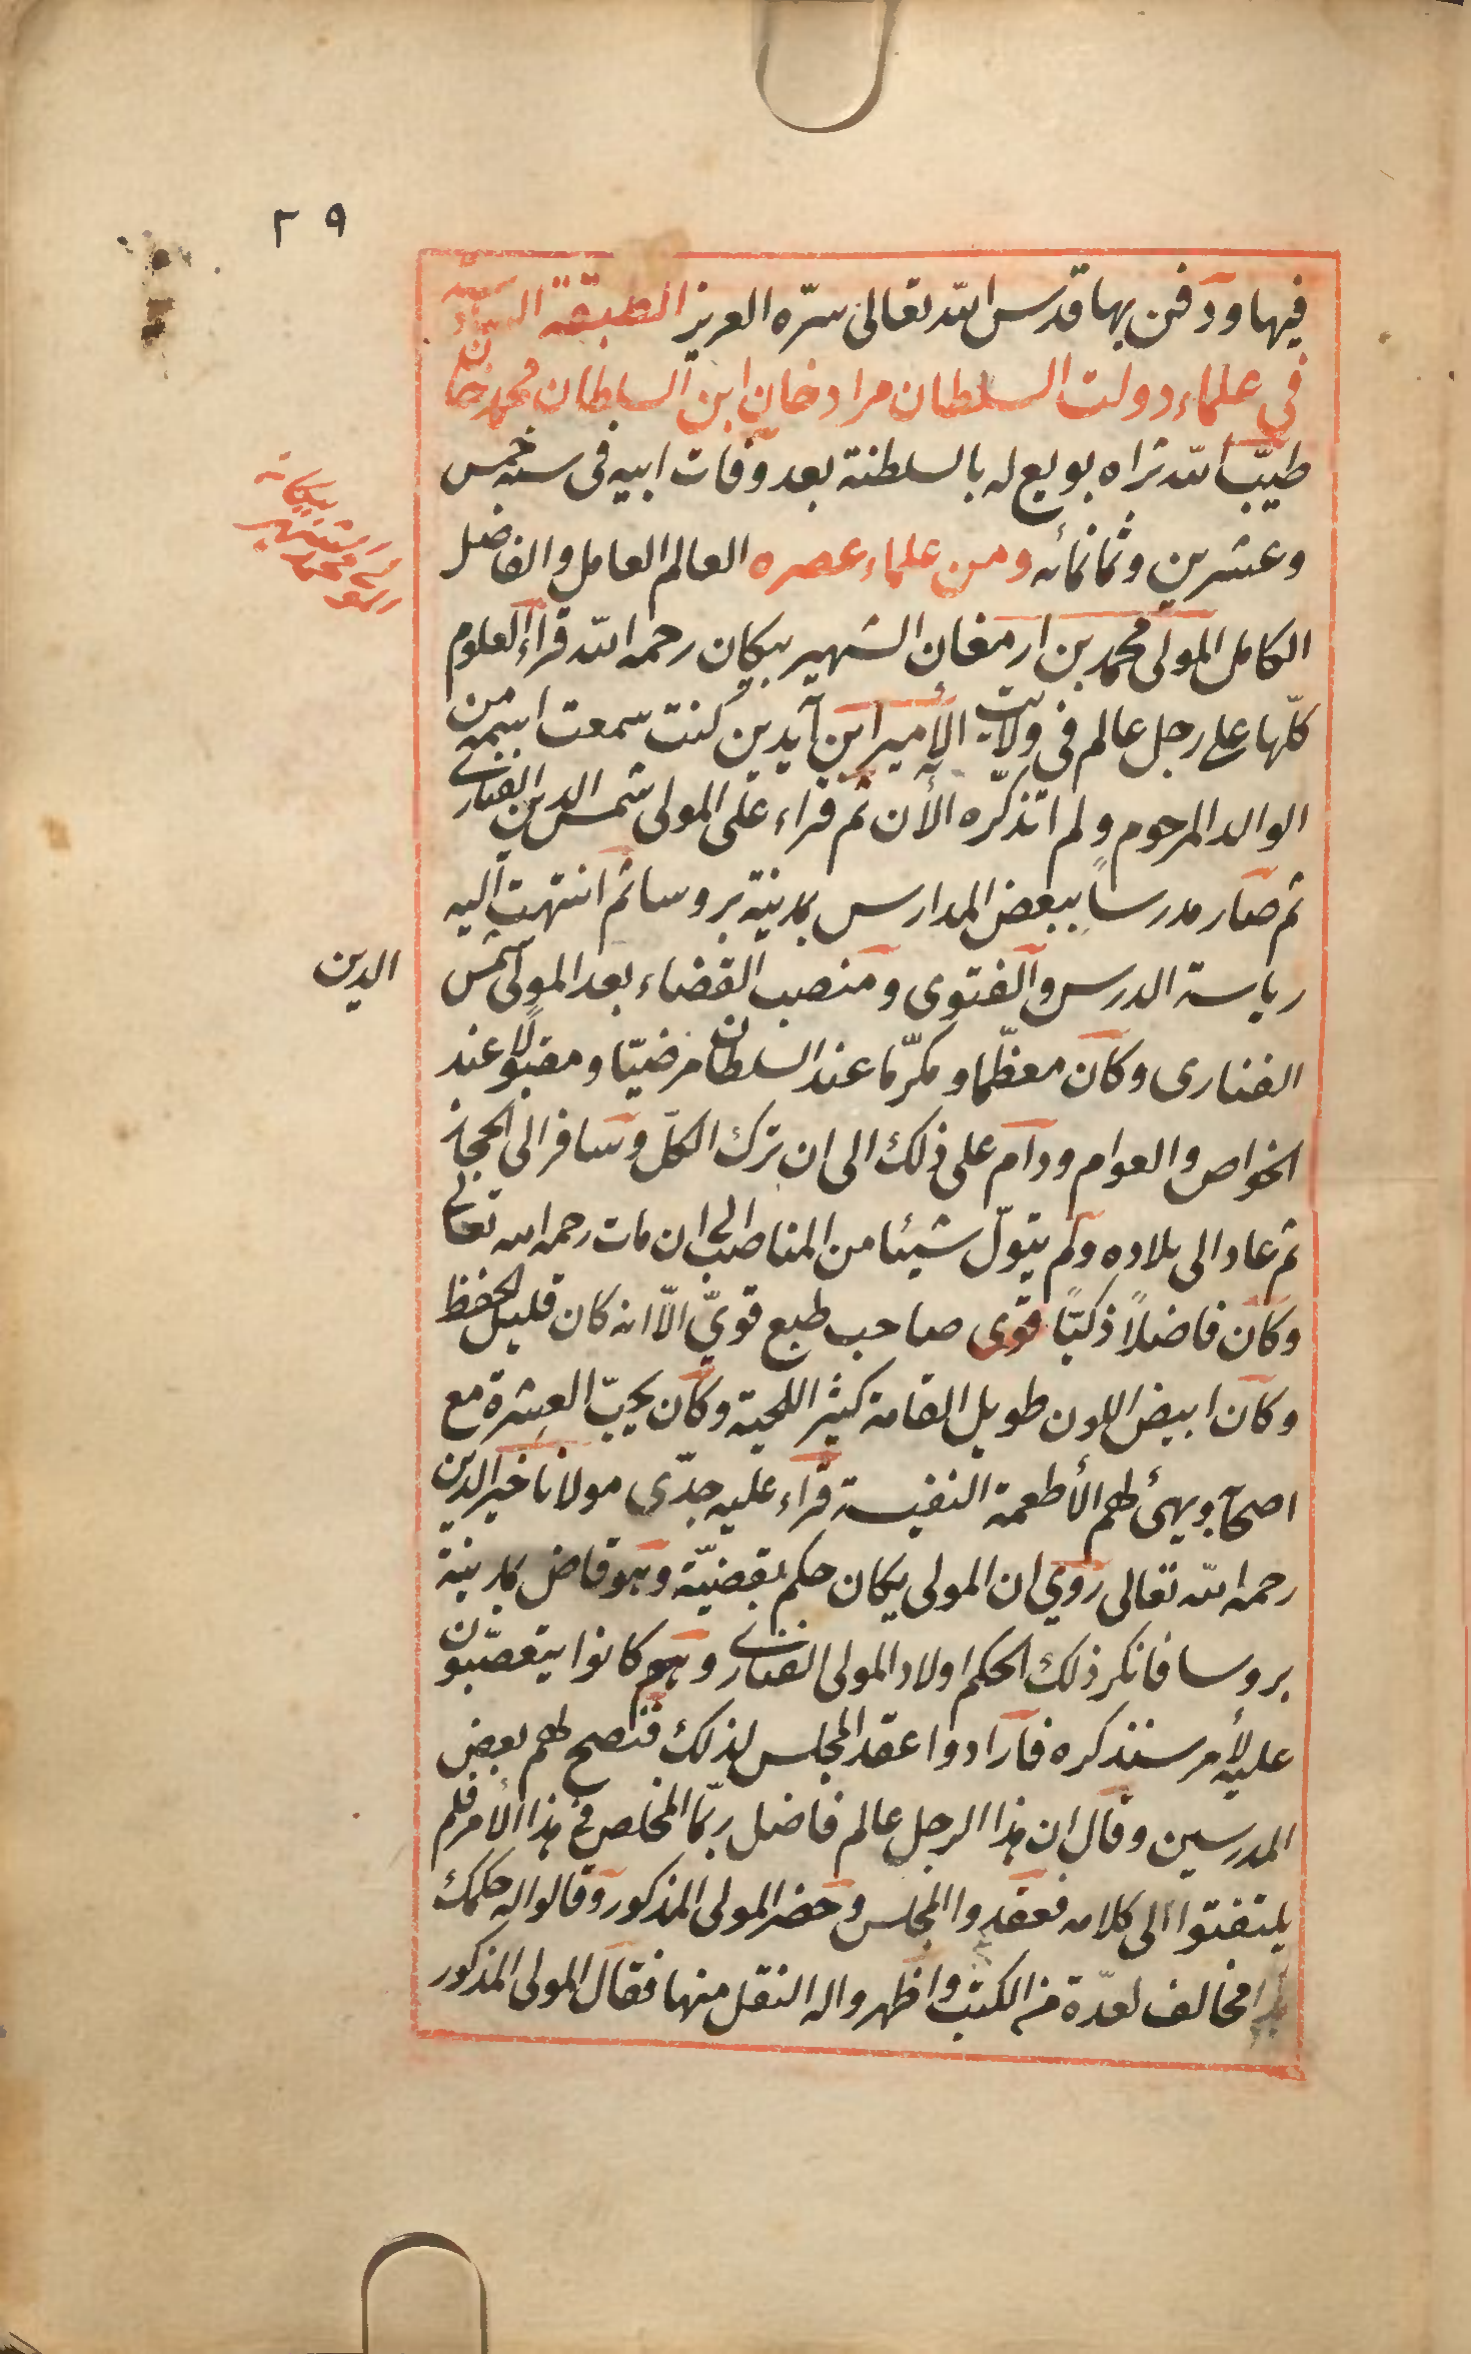 ٢٩
فيها ودفن بها قدس الله تعالى سرّه العزيز الطبقة السادسة
في علماء دولت السلطان مراد خان ابن السلطان محمد خان
طيّب الله ثراه بويع له بالسلطنة بعد وفات ابيه في سنه خمس
وعشرين وثمانمائه ومن علماء عصره العالم العامل والفاضل
المولى محمد
الشهير
بيكان
الكامل المولى محمد بن ارمغان الشهير بيكان رحمه الله قراء العلوم
كلّها على رجل عالم في ولايت الأمير ابن آيدين كنت سمعت اسمه من
الوالد المرحوم ولم اتذكّره الأن ثم قراء على المولى شمس الدين الفناري
ثم صار مدرسا ببعض المدارس بمدينة بروسا ثم انتهت اليه
رياسة الدرس والفتوى ومنصب القضاء بعد المولى شمس
الدين
الفنارى وكان معظّما ومكرّما عند السلطان مرضيّا ومقبولًا عند
الخواص والعوام ودام على ذلك الى ان ترك الكلّ وسافر الى الحجاز
ثم عاد الى بلاده ولم يتولّ شيئا من المناصب الى ان مات رحمه الله تعالى
وكان فاضلاً ذكيّاً قوى صاحب طبع قويّ الاّ انه كان قليل الحفظ
وكان ابيض اللون طويل القامة كثير اللحية وكان يحبّ العشرة مع
اصحابه ويهئ لهم الأطعمة النفيسة قراء عليه جدّى مولانا خير الدين
رحمه الله تعالى روي ان المولى يكان حكم بقضيّة وهو قاض بمدينة
بروسا فانكر ذلك الحكم اولاد المولى الفناري وهم كانوا يتعصّبون
عليه لأمر سنذكره فارادوا عقد المجلس لذلك فنصح لهم بعض
المدرسين وقال ان هذا الرجل عالم فاضل ربّما المخلص في هذا الأمر فلم
يلتفتوا الى كلامه فعقدوا المجلس وحضر المولى المذكور وقالوا له حكمك
هذا مخالف لعدّة من الكتب واظهروا له النقل منها فقال المولى المذكور